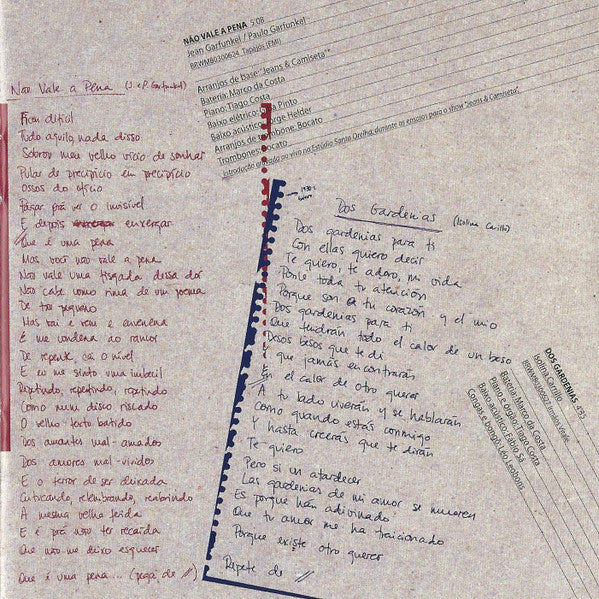 NÃO VALE A PENA 5:08
Jean Garfunkel / Paulo Garfunkel
BRWMB0300624 Tapajós (EMI)
Arranjos de base "Jeans & Camiseta"*
Bateria: Marco da Costa
Piano: Tiago Costa
Baixo elétrico: Pinto
Baixo acústico: Jorge Helder
Arranjos de trombone: Bocato
Trombones: Bocato
Introdução ao vivo no Estúdio Santo Orelha, durante os ensaios para o show "Jeans & Camiseta"
Não Vale a Pena (J. e P. Garfunkel)
Ficou difícil
Tudo aquilo, nada disso
Sobrou meu velho vício de sonhar
Pular de precipício em precipício
Ossos do ofício
Pagar prá ver o invisível
E depois enxergar
// Que é uma pena
Mas você não vale a pena
Não vale uma fisgada dessa dor
Não cabe como rima de um poema
De tão pequeno
Mas vai e vem e envenena
E me condena ao rancor
De repente, cai o nível
E eu me sinto uma imbecil
Repetindo, repetindo, repetindo
Como num disco riscado
O velho texto batido
Dos amantes mal-amados
Dos amores mal-vividos
E o terror de ser deixada
Cutucando, relembrando, reabrindo
A mesma velha ferida
E é prá não ter recaída
Que não me deixo esquecer
Que é uma pena... (pega de //)
Dos Gardenias (Isolina Carrillo)
Dos gardenias para ti
Con ellas quiero decir
Te quiero, te adoro, mi vida
Ponle toda tu atención
Porque son tu corazón y el mío
Dos gardenias para ti
Que tendrán todo el calor de un beso
Desos besos que te di
Y que jamás encontrarán
// En el calor de otro querer
A tu lado vivirán y se hablarán
Como cuando estás conmigo
Y hasta creerás que te dirán
Te quiero
Pero si un atardecer
Las gardenias de mi amor se mueren
Es porque han adivinado
Que tu amor me ha traicionado
Porque existe otro querer
Repete de //
DOS GARDENIAS 4:35
Isolina Carrillo
Bateria: Marco da Costa
Piano e órgão: Tiago Costa
Baixo acústico: Fabio Sá
Congas e bongô: Léo Leobons